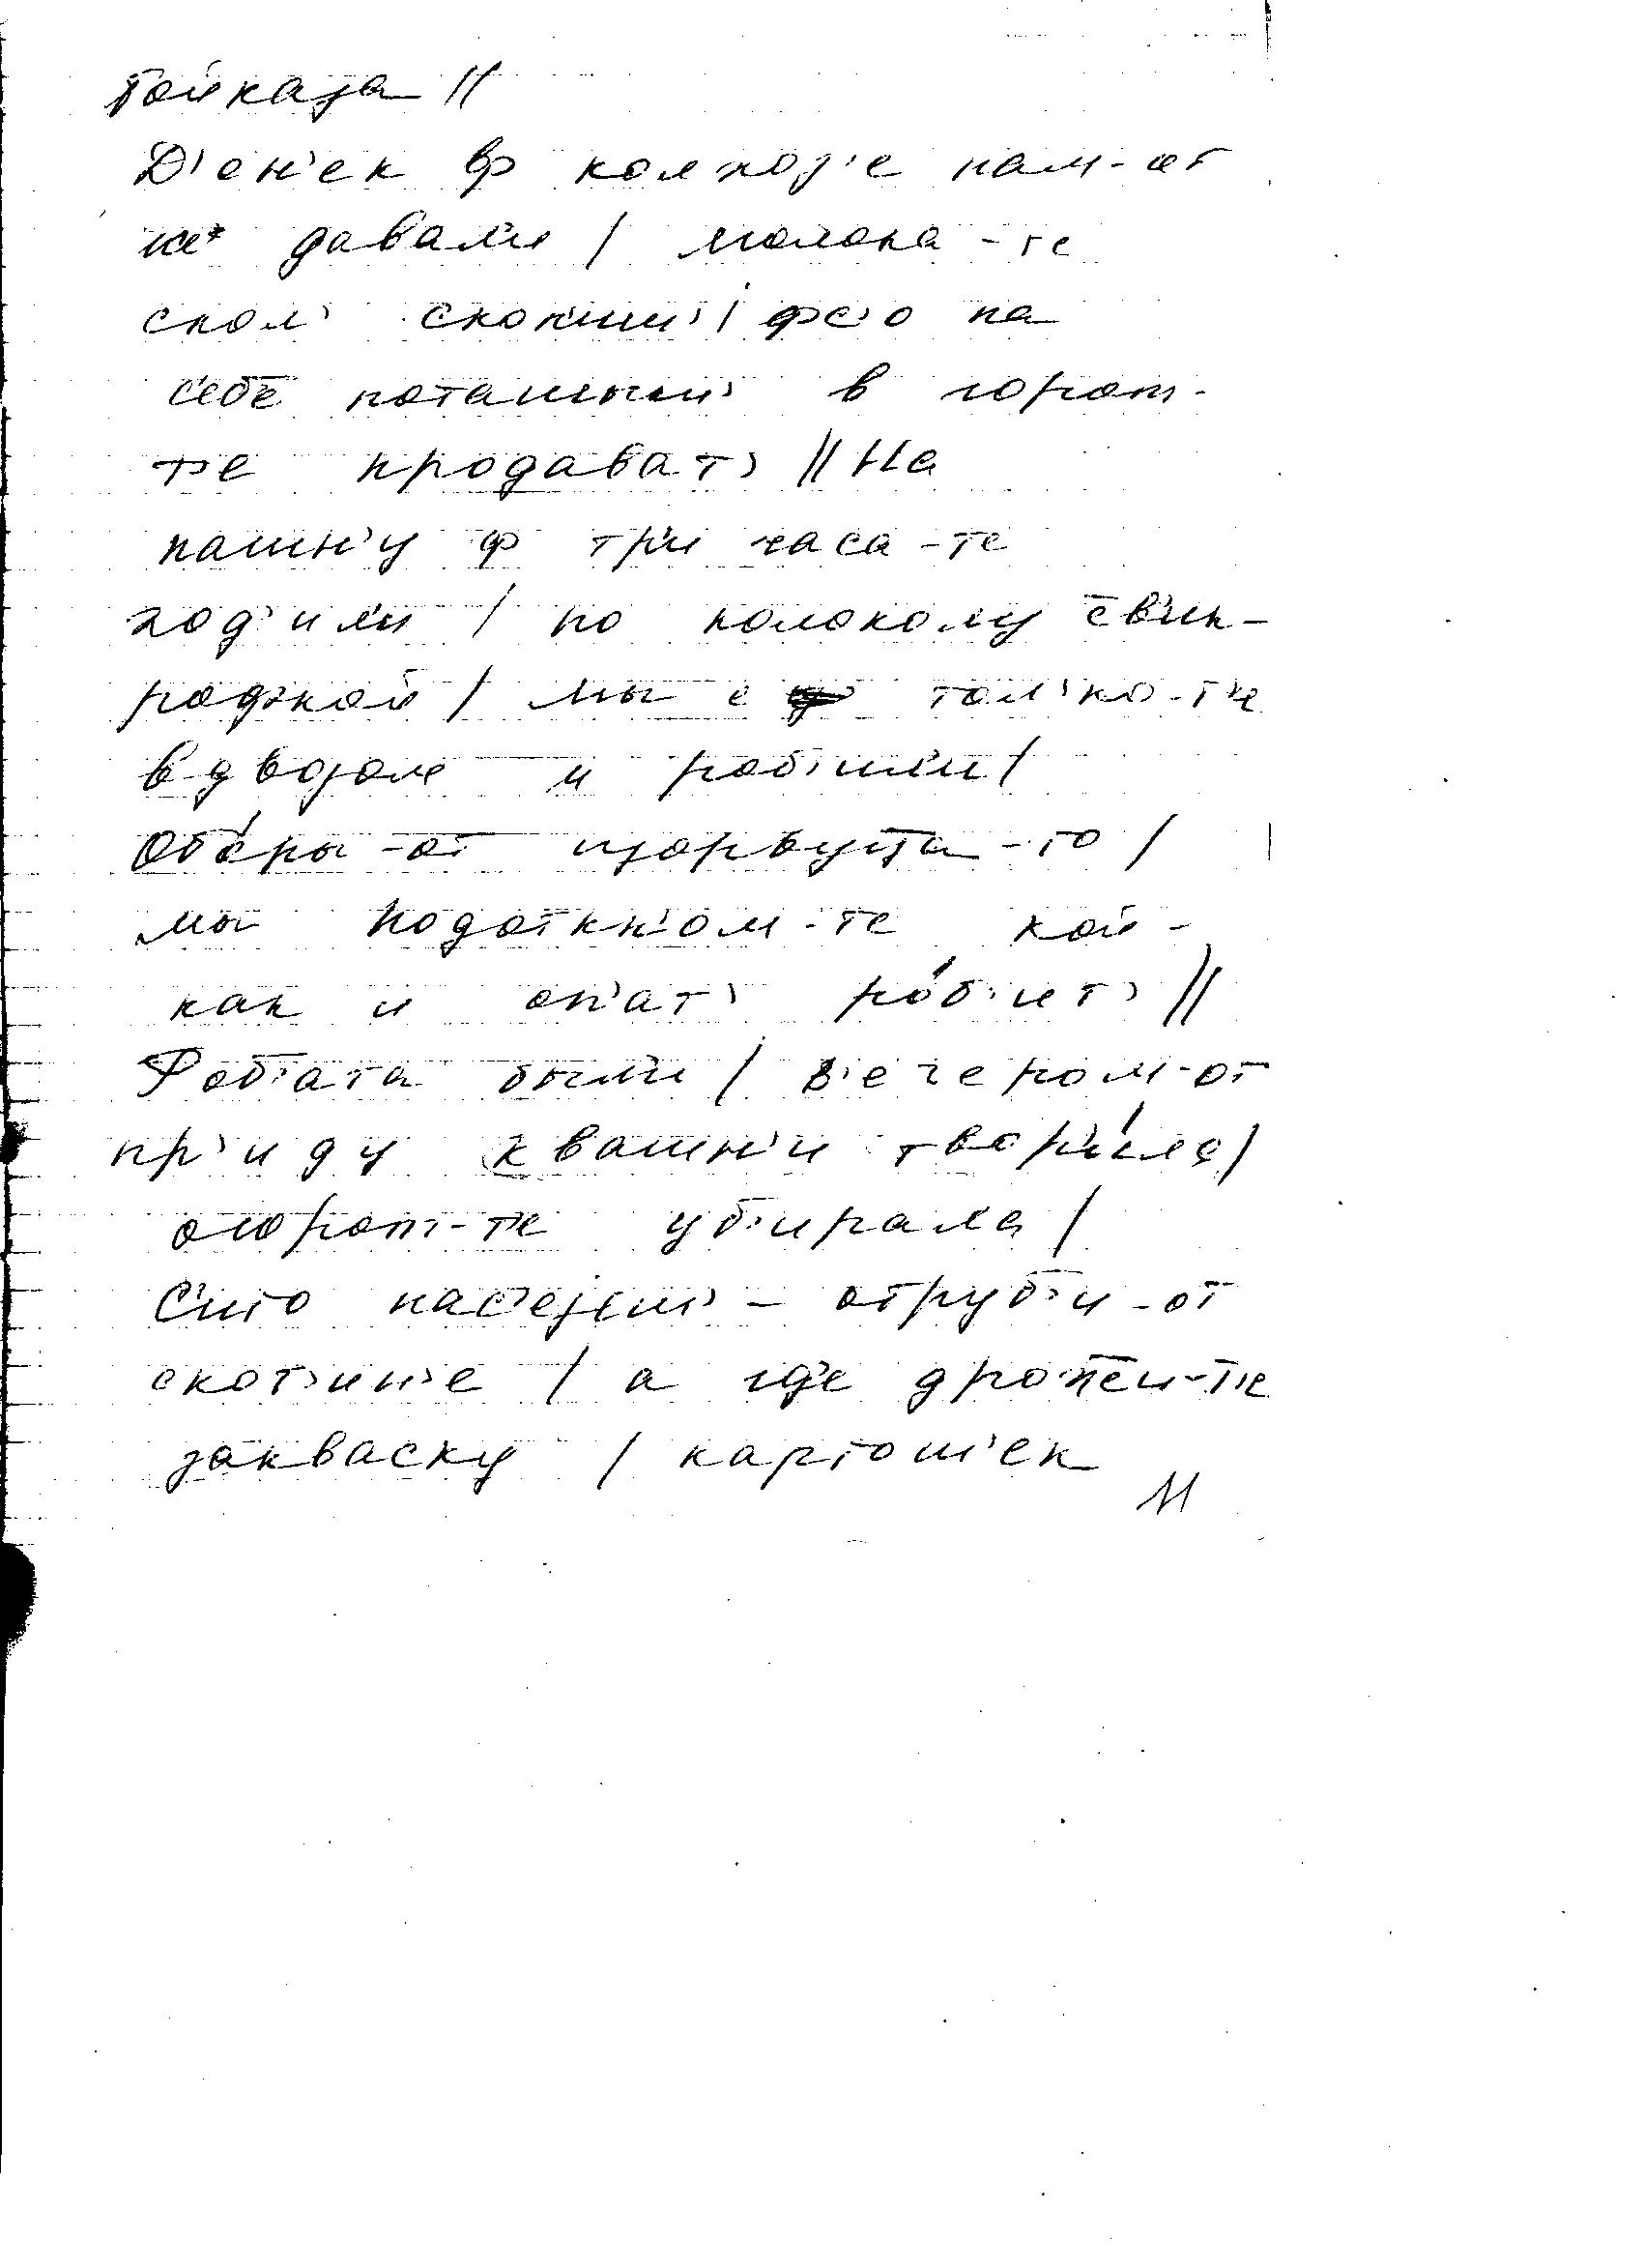 тойказа //
Д'ен'ек ф колхоз'е нам-от
не давал'и / молока-те
скол' скоп'иш' / фс'о на
с'еб'е поташшыш' в горот-
т'е продават' // На
пашн'у ф тр'и часа-те
ход'ил'и / по колоколу
мы с тол'ко-т'е
и роб'ил'и /
-от -то /
мы подоткн'ом-те кой-
как и оп'ат' роб'ит' //
Роб'ата был'и / в'ечером-от
пр'иду квашн'и твор'ила /
огорот-т'е уб'ирала /
С'ито нас'ејеш' - отруб'и-от
скот'ин'е / а гд'е дрожеи-т'е
закваску / картош'ек
11